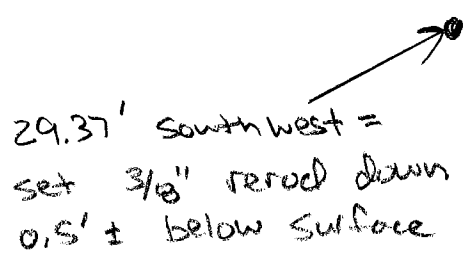 29.37' southwest =
set 3/8" rerod down
0.5' ± below surface